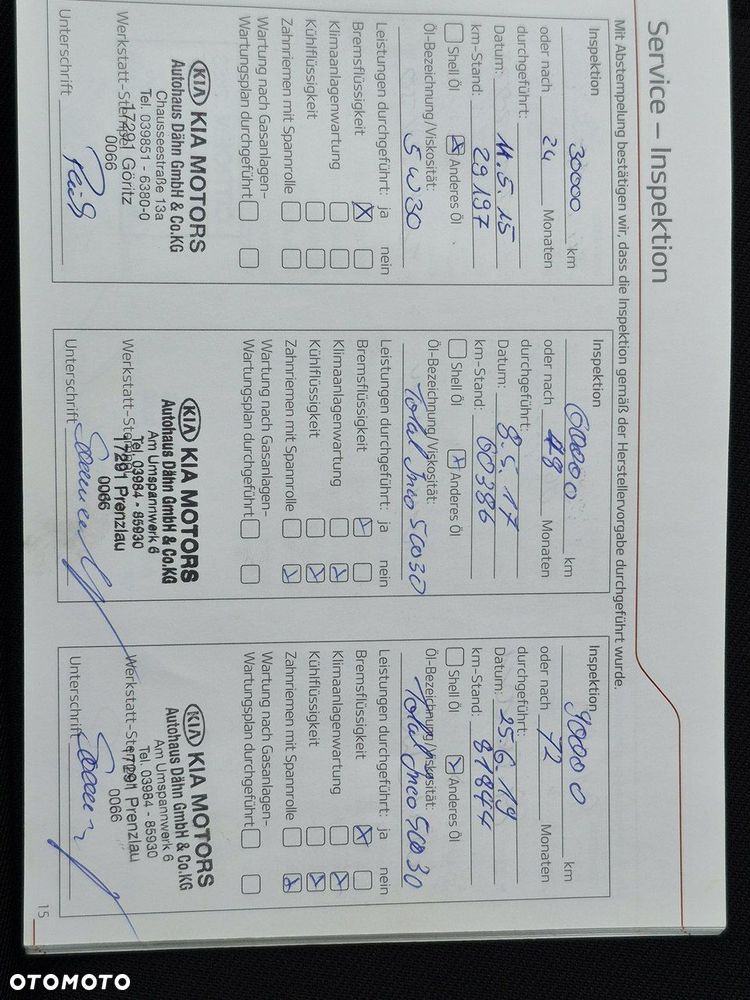 Service – Inspektion
Mit Abstempelung bestätigen wir, dass die Inspektion gemäß der Herstellervorgabe durchgeführt wurde.
Inspektion
30000 km
oder nach 24 Monaten
durchgeführt:
Datum: 11.5.15
km-Stand: 29197
Shell Öl Anderes Öl
Öl-Bezeichnung/Viskosität:
5W30
Leistungen durchgeführt: ja nein
Bremsflüssigkeit
Klimaanlagenwartung
Kühlflüssigkeit
Zahnriemen mit Spannrolle
Wartung nach Gasanlagen-
Wartungsplan durchgeführt
KIA KIA MOTORS
Autohaus Dähn GmbH & Co.KG
Chausseestraße 13a
Tel. 039851 - 6380-0
Werkstatt-Stempel 17291 Göritz
0066
Unterschrift
Inspektion
60000 km
oder nach 48 Monaten
durchgeführt:
Datum: 8.5.17
km-Stand: 60386
Shell Öl Anderes Öl
Öl-Bezeichnung/Viskosität:
Total Ineo 5W30
Leistungen durchgeführt: ja nein
Bremsflüssigkeit
Klimaanlagenwartung
Kühlflüssigkeit
Zahnriemen mit Spannrolle
Wartung nach Gasanlagen-
Wartungsplan durchgeführt
KIA KIA MOTORS
Autohaus Dähn GmbH & Co.KG
Am Umspannwerk 6
Tel. 03984 - 85930
Werkstatt-Stempel 17291 Prenzlau
0066
Unterschrift
Inspektion
90000 km
oder nach 72 Monaten
durchgeführt:
Datum: 25.6.19
km-Stand: 81844
Shell Öl Anderes Öl
Öl-Bezeichnung/Viskosität:
Total Ineo 5W30
Leistungen durchgeführt: ja nein
Bremsflüssigkeit
Klimaanlagenwartung
Kühlflüssigkeit
Zahnriemen mit Spannrolle
Wartung nach Gasanlagen-
Wartungsplan durchgeführt
KIA KIA MOTORS
Autohaus Dähn GmbH & Co.KG
Am Umspannwerk 6
Tel. 03984 - 85930
Werkstatt-Stempel 17291 Prenzlau
0066
Unterschrift
15
OTOMOTO